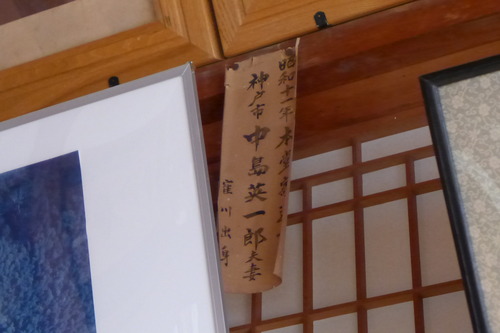 昭和十一年本堂
神戸市 中島英一郎夫妻
窪川出身